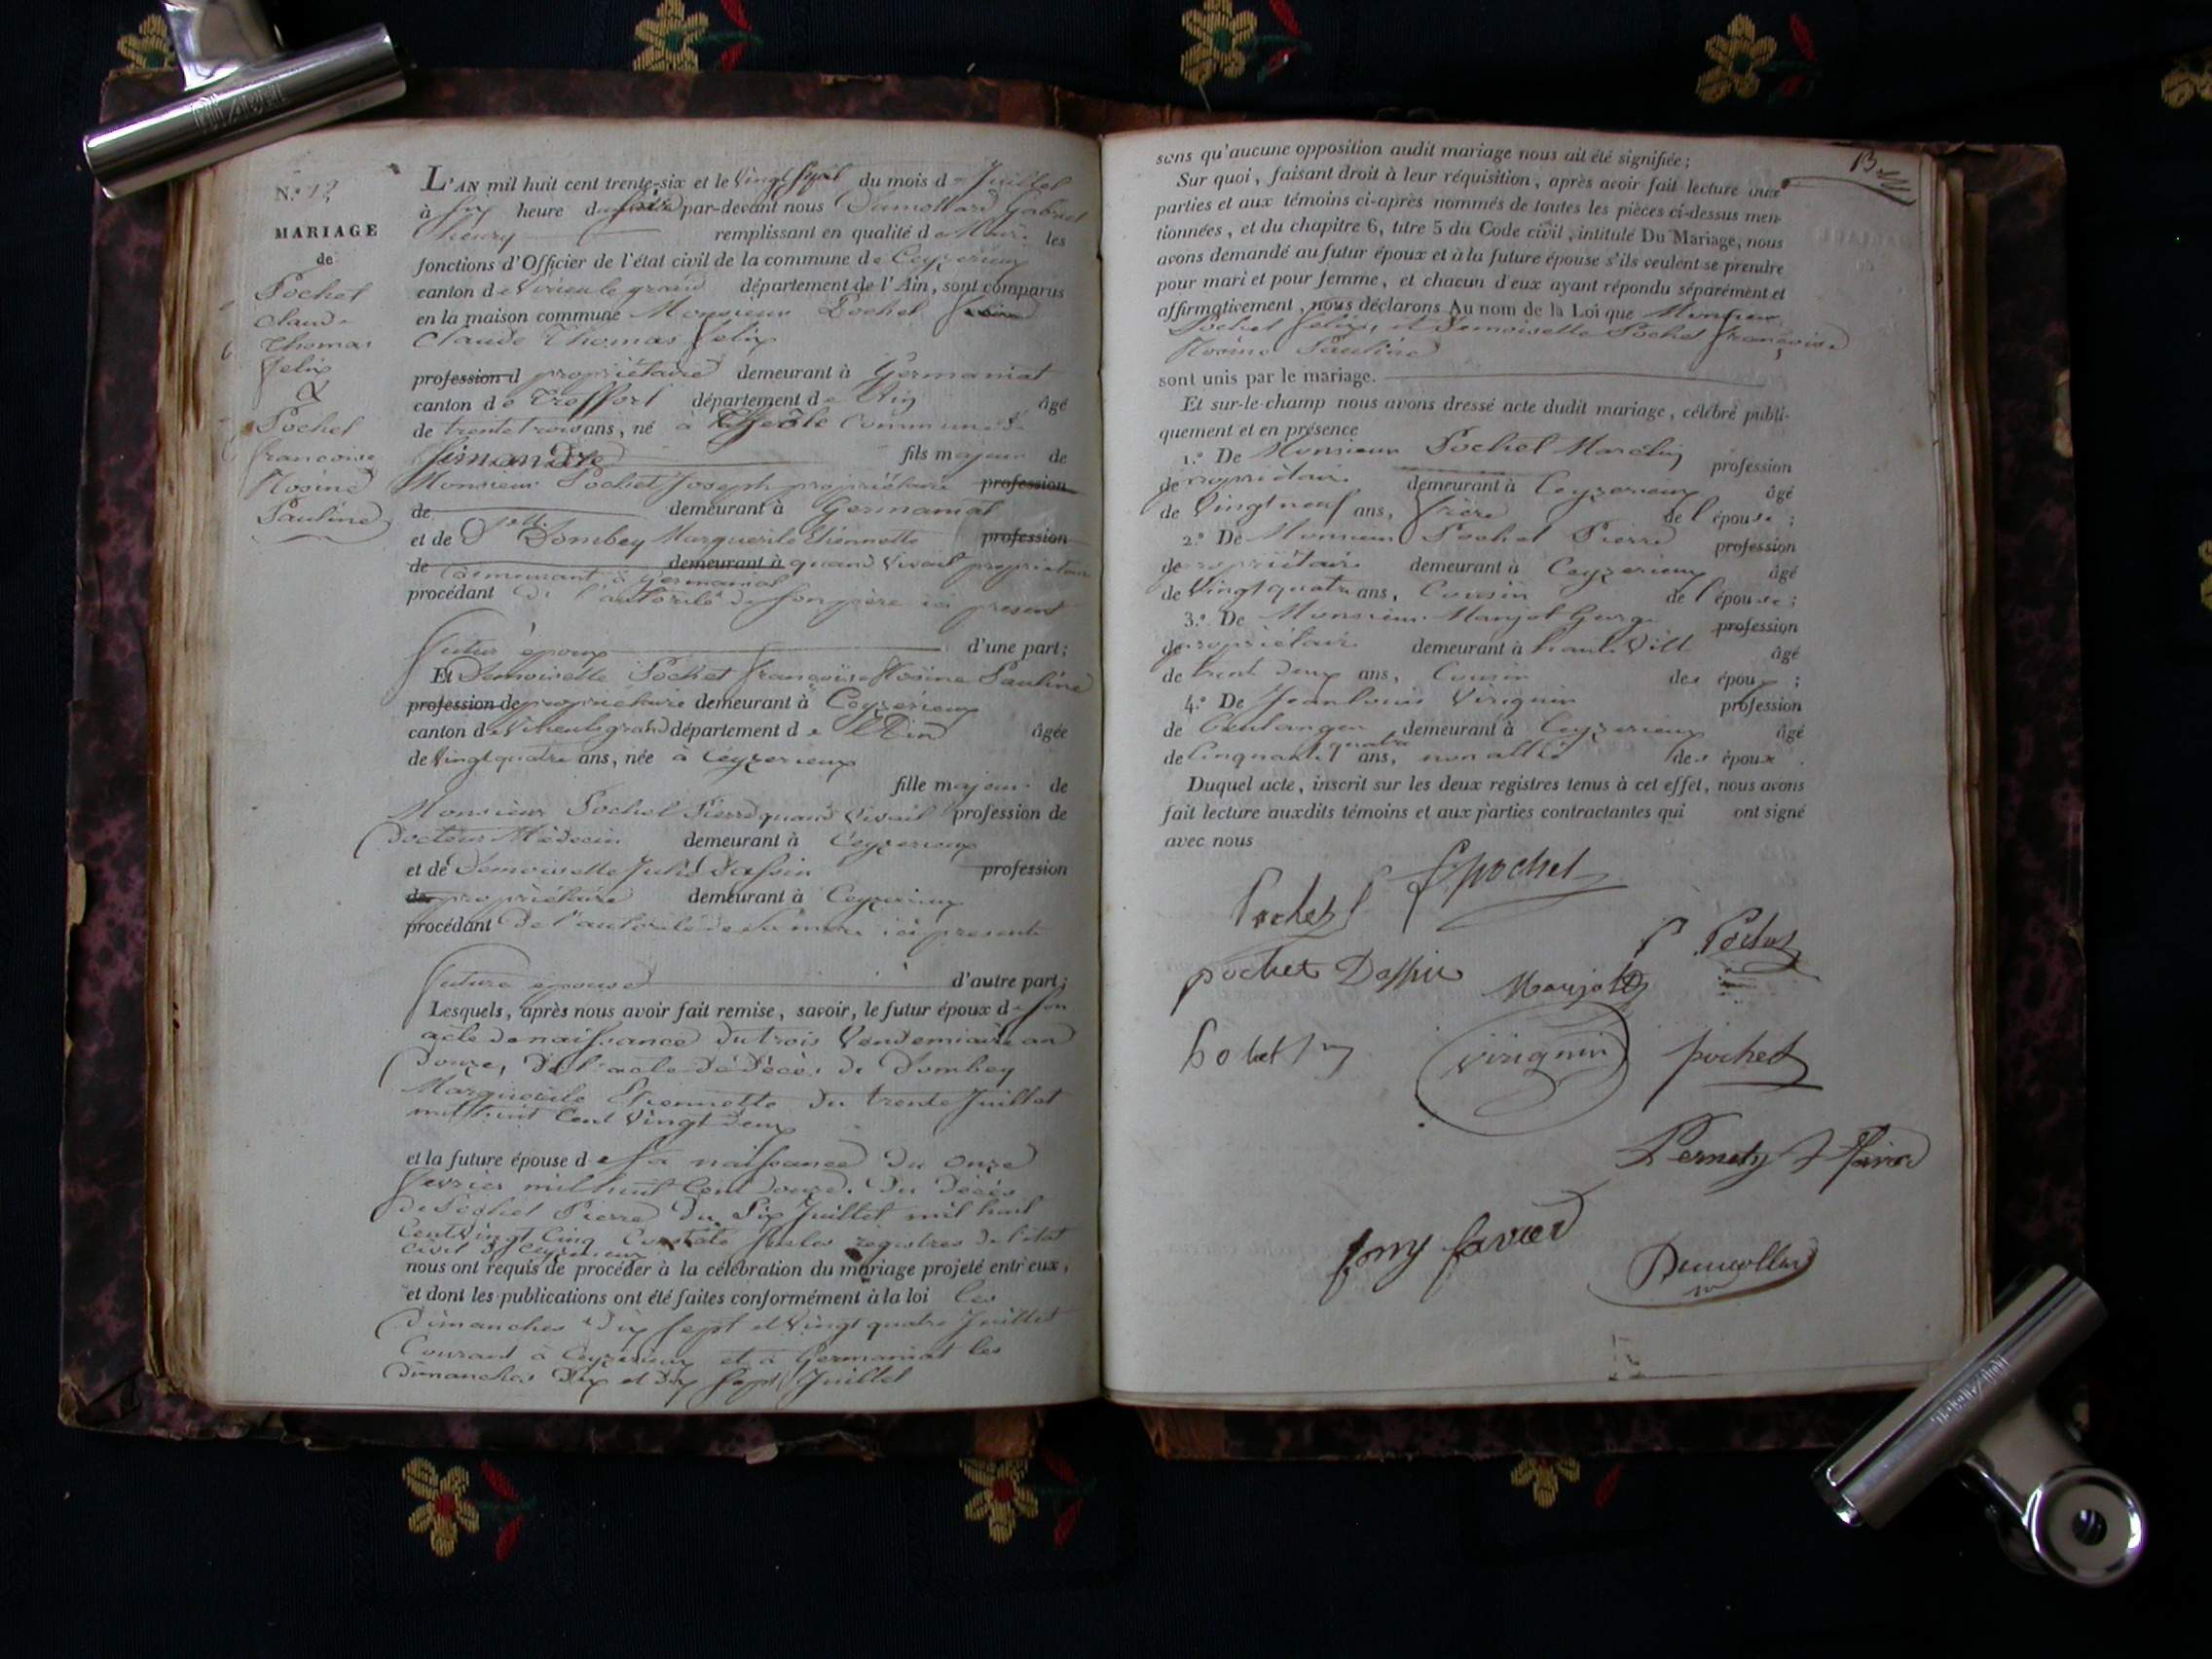 N.º 12
MARIAGE
de
Pochet
Claude
Thomas
felix
&
Pochet
françoise
Rosine
Pauline
L'AN mil huit cent trente-six et le vingt sept du mois de Juillet
à six heure du soir par-devant nous Dumollard Gabriel
henry remplissant en qualité de Maire les
fonctions d'Officier de l'état civil de la commune de Ceyzerieux
canton de virieu le grand département de l'Ain, sont comparus
en la maison commune Monsieur Pochet
Claude Thomas felix
profession d propriétaire demeurant à Germaniat
canton de Treffort département de Ain âgé
de trente trois ans, né à commune de
Simandre fils majeur de
Monsieur Pochet Joseph propriétaire profession
de demeurant à Germaniat
et de Dombey Marguerite Etiennette profession
de demeurant à quand vivait propriétaire
demeurant à Germaniat
procédant de l'autorité de son père ici present
futur époux d'une part;
Et Demoiselle Pochet françoise Rosine Pauline
profession de propriétaire demeurant à Ceyzerieux
canton de virieu le grand département de l'Ain âgée
de vingt quatre ans, née à Ceyzerieux
fille majeure de
Monsieur Pochet Pierre quand vivait profession de
Docteur Médecin demeurant à Ceyzerieux
et de Demoiselle Julie Dassin profession
de propriétaire demeurant à Ceyzerieux
procédant de l'autorité de sa mère ici presente
future épouse d'autre part;
Lesquels, après nous avoir fait remise, savoir, le futur époux de son
acte de naissance du trois Vendemiaire an
douze, de l'acte de décès de Dombey
Marguerite Etiennette du trente Juillet
mil huit cent vingt deux
et la future épouse de sa naissance du onze
fevrier mil huit cent douze. du décès
de Pochet Pierre du six Juillet mil huit
cent vingt cinq constaté sur les registres de l'état
civil de Ceyzerieux
nous ont requis de procéder à la célébration du mariage projeté entr'eux,
et dont les publications ont été faites conformément à la loi les
dimanches dix sept et vingt quatre Juillet
Courant à Ceyzerieux et à Germaniat les
Dimanches dix et dix sept Juillet
sans qu'aucune opposition audit mariage nous ait été signifiée;
Sur quoi, faisant droit à leur réquisition, après avoir fait lecture aux
parties et aux témoins ci-après nommés de toutes les pièces ci-dessus men-
tionnées, et du chapitre 6, titre 5 du Code civil, intitulé Du Mariage, nous
avons demandé au futur époux et à la future épouse s'ils veulent se prendre
pour mari et pour femme, et chacun d'eux ayant répondu séparément et
affirmativement, nous déclarons Au nom de la Loi que Monsieur
Pochet felix, et Demoiselle Pochet françoise
Rosine Pauline
sont unis par le mariage.
Et sur-le-champ nous avons dressé acte dudit mariage, célébré publi-
quement et en présence
1.º De Monsieur Pochet Marclin profession
de propriétaire demeurant à Ceyzerieux âgé
de vingt neuf ans, frère de l'épouse;
2.º De Monsieur Pochet Pierre profession
de propriétaire demeurant à Ceyzerieux âgé
de vingt quatre ans, Cousin de l'épouse;
3.º De Monsieur Marjot Georg profession
de propriétaire demeurant à haute Ville âgé
de trent deux ans, Cousin des époux;
4.º De Jean louis Virignin profession
de boulanger demeurant à Ceyzerieux âgé
de cinquante quatre ans, non allié des époux.
Duquel acte, inscrit sur les deux registres tenus à cet effet, nous avons
fait lecture auxdits témoins et aux parties contractantes qui ont signé
avec nous
fpochet
Pochet f
P Pochet
pochet Dassin
Marjot
virignin
pochet
Pernety
fany favier
Dumollard